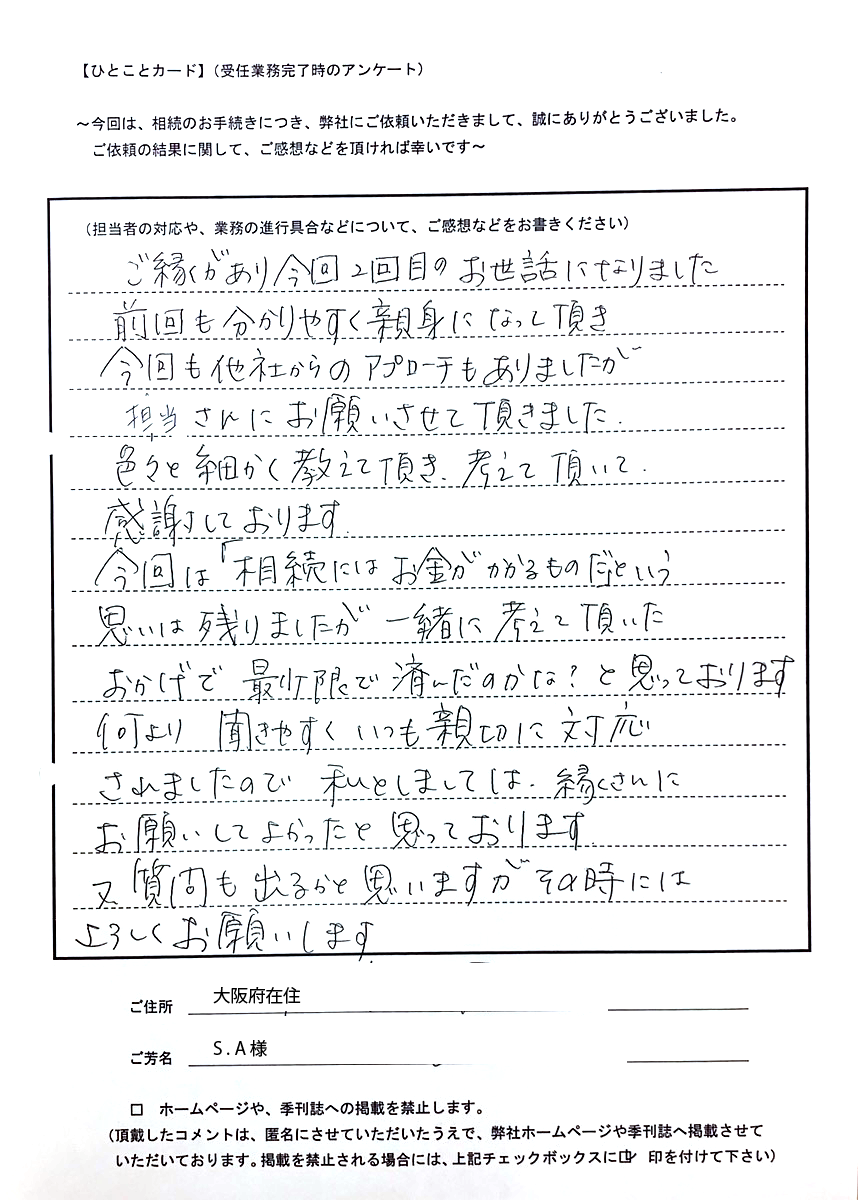 【ひとことカード】（受任業務完了時のアンケート）
～今回は、相続のお手続きにつき、弊社にご依頼いただきまして、誠にありがとうございました。
ご依頼の結果に関して、ご感想などを頂ければ幸いです～
（担当者の対応や、業務の進行具合などについて、ご感想などをお書きください）
ご縁があり今回2回目のお世話になりました
前回も分かりやすく親身になって頂き
今回も他社からのアプローチもありましたが
担当さんにお願いさせて頂きました.
色々と細かく教えて頂き、考えて頂いて.
感謝しております.
今回は「相続にはお金がかかるものだ」という
思いは残りましたが 一緒に考えて頂いた
おかげで 最小限で済んだのかな？と思っております
何より 聞きやすく いつも親切に対応
されましたので 私としましては、縁くさんに
お願いしてよかったと思っております.
又質問も出るかと思いますがその時には
よろしくお願いします
ご住所 大阪府在住
ご芳名 S.A様
□ ホームページや、季刊誌への掲載を禁止します。
（頂戴したコメントは、匿名にさせていただいたうえで、弊社ホームページや季刊誌へ掲載させて
いただいております。掲載を禁止される場合には、上記チェックボックスに☑ 印を付けて下さい）